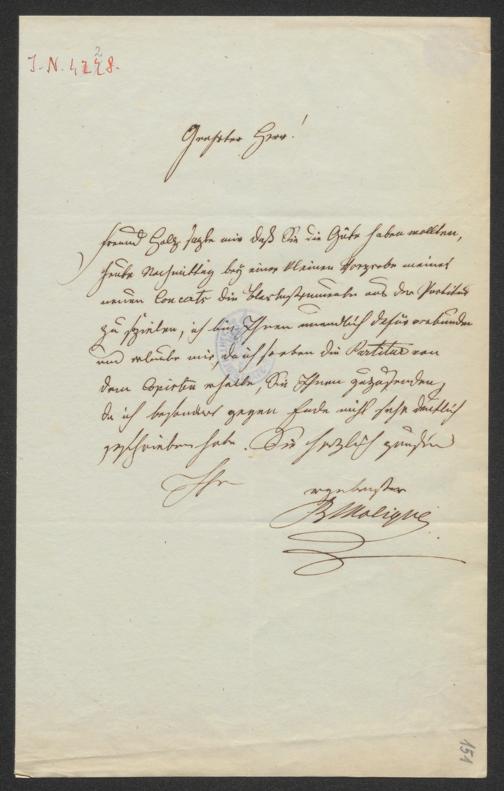 J. N. 4278.
2
Geehrter Herr!
Freund Holz sagte mir daß Sie die Güte haben wollten,
heute Nachmittag bey einer kleinen Vorprobe meines
neuen Concerts die Blasinstrumente aus der Partitur
zu spielen, ich bin Ihnen unendlich dafür verbunden
und erlaube mir, da ich soeben die Partitur von
dem Copisten erhalte, Sie Ihnen zuzusenden,
da ich besonders gegen Ende nicht sehr deutlich
geschrieben habe. Sie herzlich grüßend
Ihr
ergebenster
B Molique
151